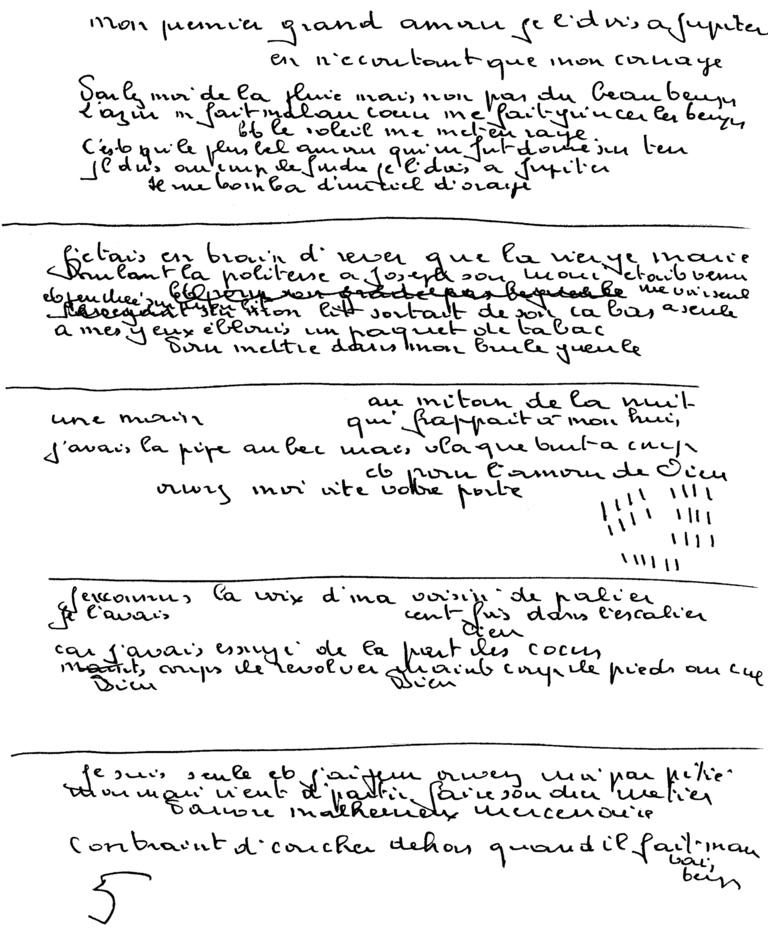 mon premier grand amour je l'dois a Jupiter
en n'ecoutant que mon courage
Parlez moi de la pluie mais non pas du beau temps
L'azur m fait mal au coeur me fait grincer les
Et le soleil me met en rage
C'est qu'le plus bel amour qui m fut donné sur terr
Jl dois au temp de je l'dois a Jupiter
Je me tomba d'un ciel d'orage
J'etais en train d'rever que la vierge marie
Voulant la politesse a Joseph son mari etait venu
me voir seul
et penchée sur mon lit sortait de son cabas a seule
a mes yeux éblouis un paquet de tabac
Pour mettre dans mon brule gueule
au mitan de la nuit
une main qui frappait à mon huis
j'avais la pipe au bec mais vla que tout a coup
et pour l'amour de Dieu
ouvrez moi vite votre porte
Je reconnus la voix d'ma voisin' de palier
Je l'avais cent fois dans l'escalier
car j'avais essuyé de la part des cocus
coups de revolver maint coup de pieds au cue
Bien Bien
Je suis seule et j'ai peur ouvrez moi par pitié
Mon mari vient d'partir faire son dur metier
Pauvre malheureux mercenaire
Contraint d'coucher dehors quand il fait mau
vais
temps
5